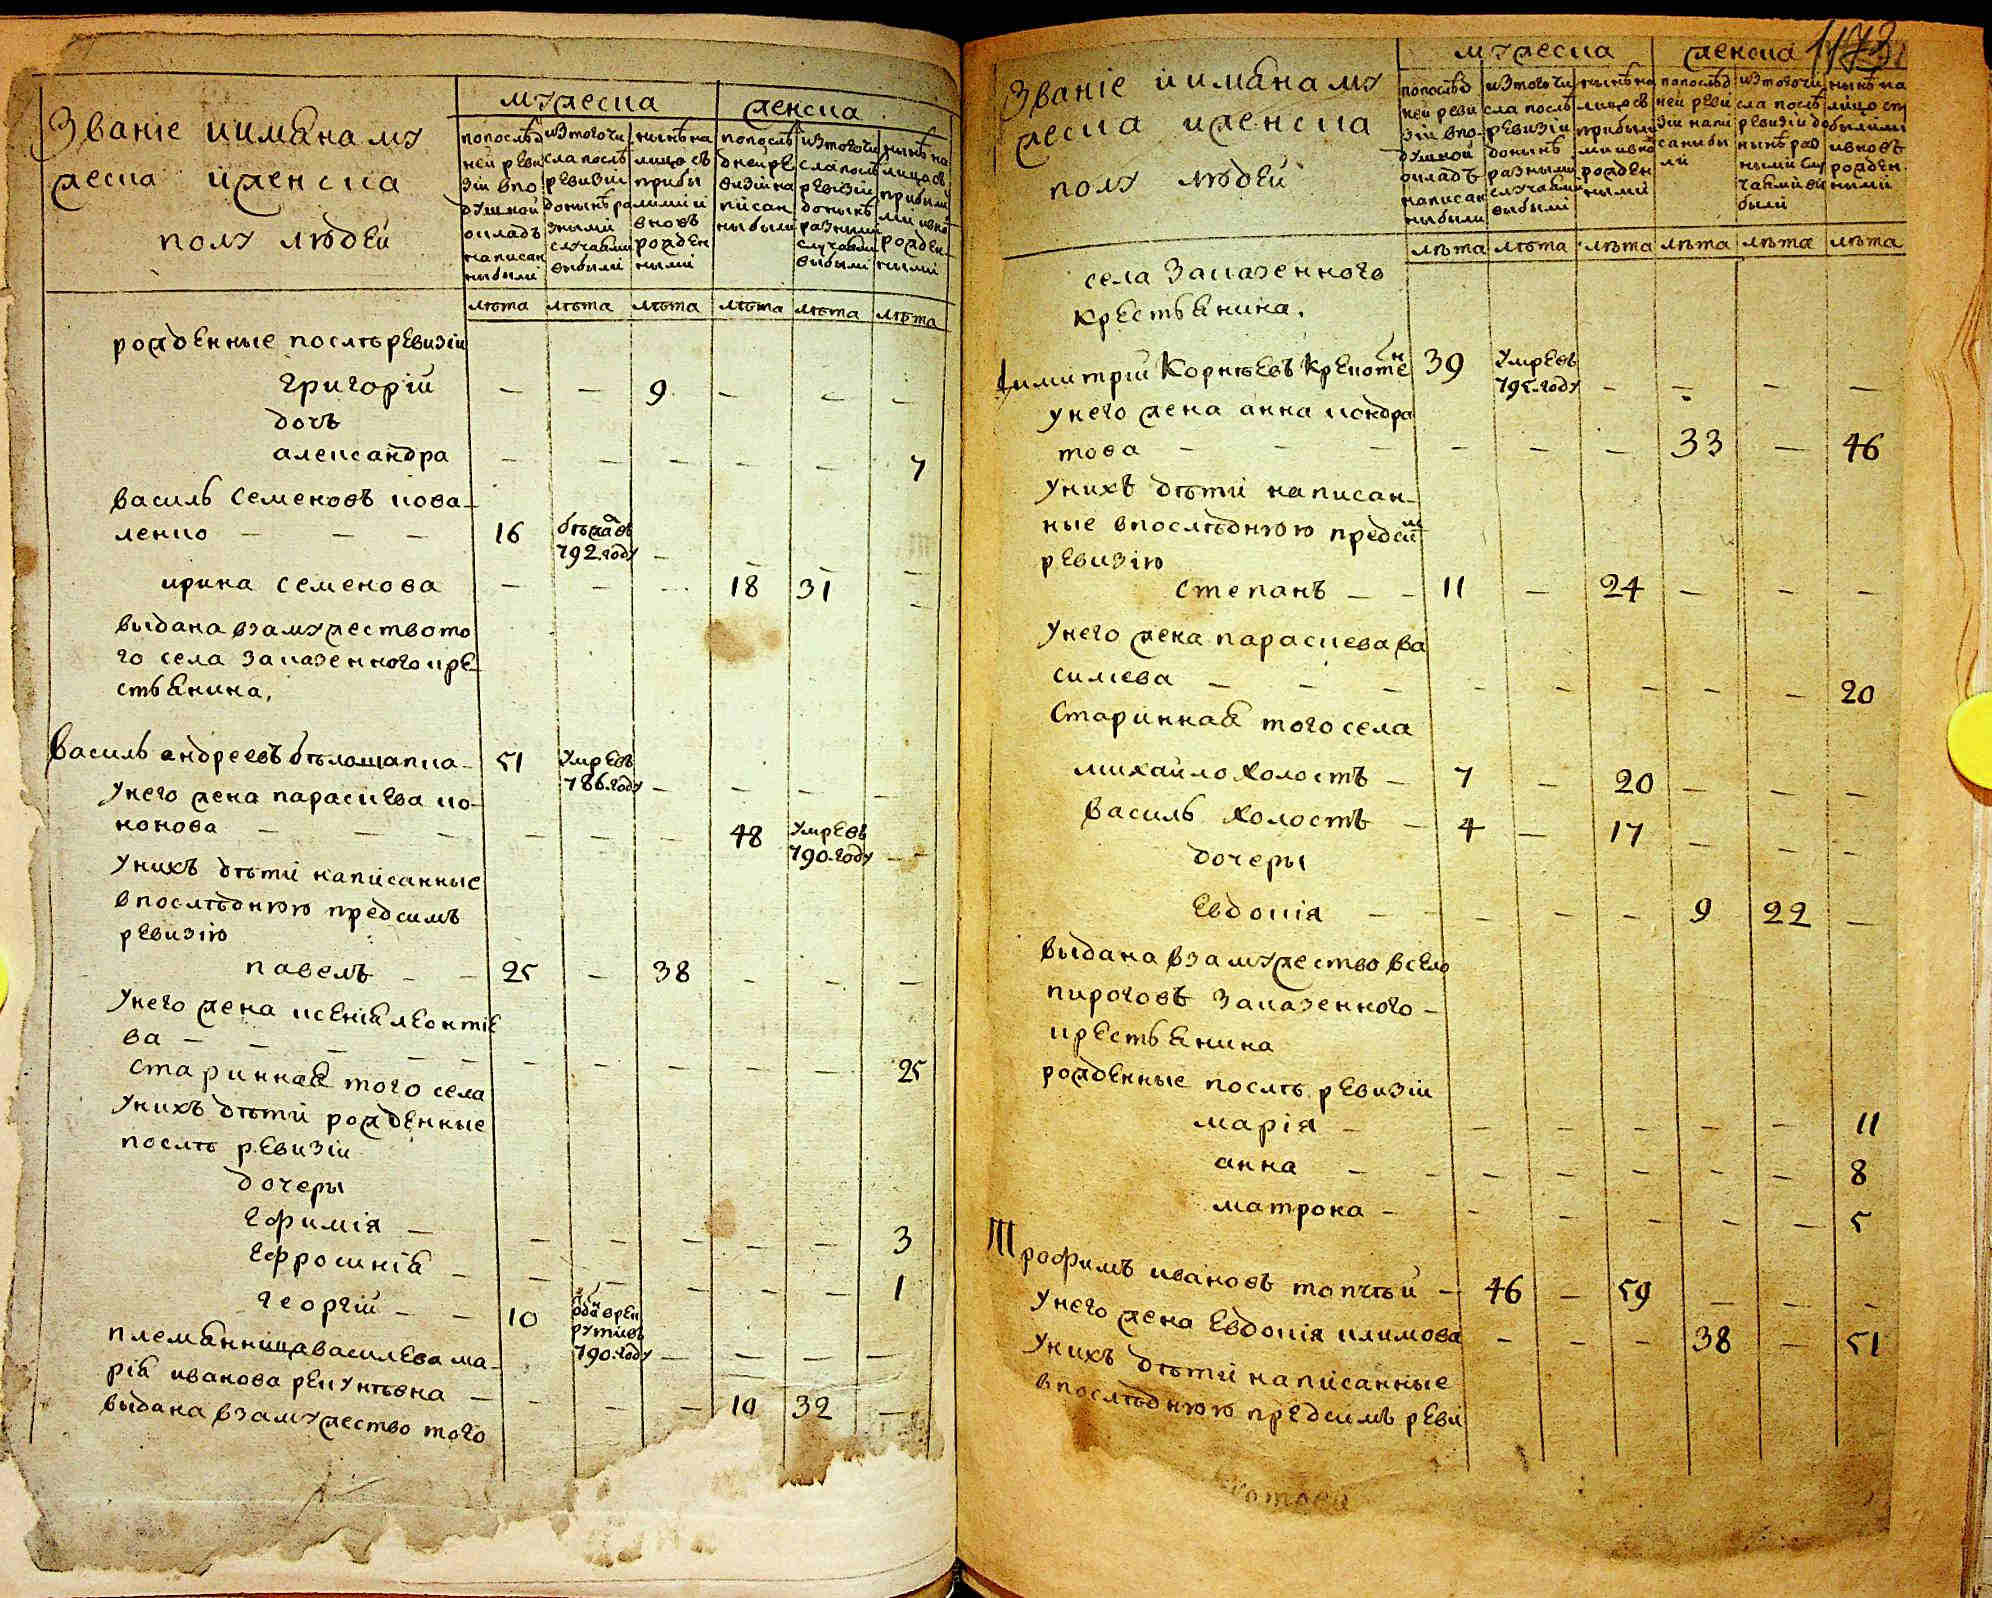 Званіе иимѧна му
жеска иженска
полу людей
мужеска
женска
попослѣд
ней реви
зіи впо
душной
окладъ
написан
ныбыли
изтогочи
сла послѣ
ревизіи
донынѣ ра
зными
случаями
выбыли
нынѣ на
лицо съ
прибы
лими и
вновь
рожден
ными
попослѣ
дней ре
визіи на
писан
ны были
изтогочи
сла послѣ
ревизіи
донынѣ
разными
случаями
выбыли
нынѣ на
лицо съ
прибыли
ми ивно
рожден
ными
лѣта лѣта лѣта лѣта лѣта лѣта
рожденные послѣ ревизіи
григорій — — 9 — — —
дочь
александра — — — — — 7
василь Семеновъ кова
ленко — — — 16 бѣжавъ
792.году — — — —
ирина семенова — — — 18 31 —
выдана взамужеството
го села заказенного кре
стьѧнина.
Василь андреевъ бѣлошапка — 51 умревъ
786.году — — — —
унего жена параскева ко
нонова — — — — — — 48 умревъ
790.году — —
унихъ дѣти написанные
впослѣднюю предсимъ
ревизію
павелъ — — 25 — 38 — — —
унего жена ксеніѧ леонтіе
ва — — — — — — — — — — 25
стариннаѧ того села
унихъ дѣти рожденные
послѣ ревизіи
дочеры
ефимія — — — — — — 3
ефросиніѧ — — — — — — 1
георгій — — 10 одань врек
рутывъ
790.году — — — —
племѧнница василева ма
ріѧ иванова рекунѣвна — — — — 19 32 —
выдана взамужество того
1173
Званіе иимѧна му
жеска иженска
полу людей
мужеска
женска
попослѣд
ней реви
зіи впо
душной
окладъ
написан
ныбыли
изтогочи
сла послѣ
ревизіи
донынѣ
разными
случаями
выбыли
нынѣ на
лицо съ
прибыли
ми ивно
рожден
ными
попослѣд
ней реви
зіи напи
саны бы
ли
изтогочи
сла послѣ
ревизіи до
нынѣ раз
ными слу
чаями вы
были
нынѣ на
лицо съп
былими
ивновь
рожден
ными
лѣта лѣта лѣта лѣта лѣта лѣта
села заказенного
крестьѧнина.
Димитрій Корнѣевъ Крекотень 39 умревъ
795.году — — — —
унего жена анна кондра
това — — — — — — 33 — 46
унихъ дѣти написан
ные впослѣднюю предсим
ревизію
степанъ — — 11 — 24 — — —
унего жена параскева ва
силиева — — — — — — — — 20
Стариннаѧ того села
михайло холостъ — 7 — 20 — — —
василь холостъ — 4 — 17 — — —
дочеры
Евдокія — — — — — 9 22 —
выдана взамужество всело
пироговъ заказенного —
крестьѧнина
рожденные послѣ ревизіи
марія — — — — — — 11
анна — — — — — — — 8
матрона — — — — — — 5
Трофимъ ивановъ топчѣй — 46 — 59 — — —
унего жена Евдокія климова — — — 38 — 51
унихъ дѣти написанные
впослѣднюю предсимъ реви